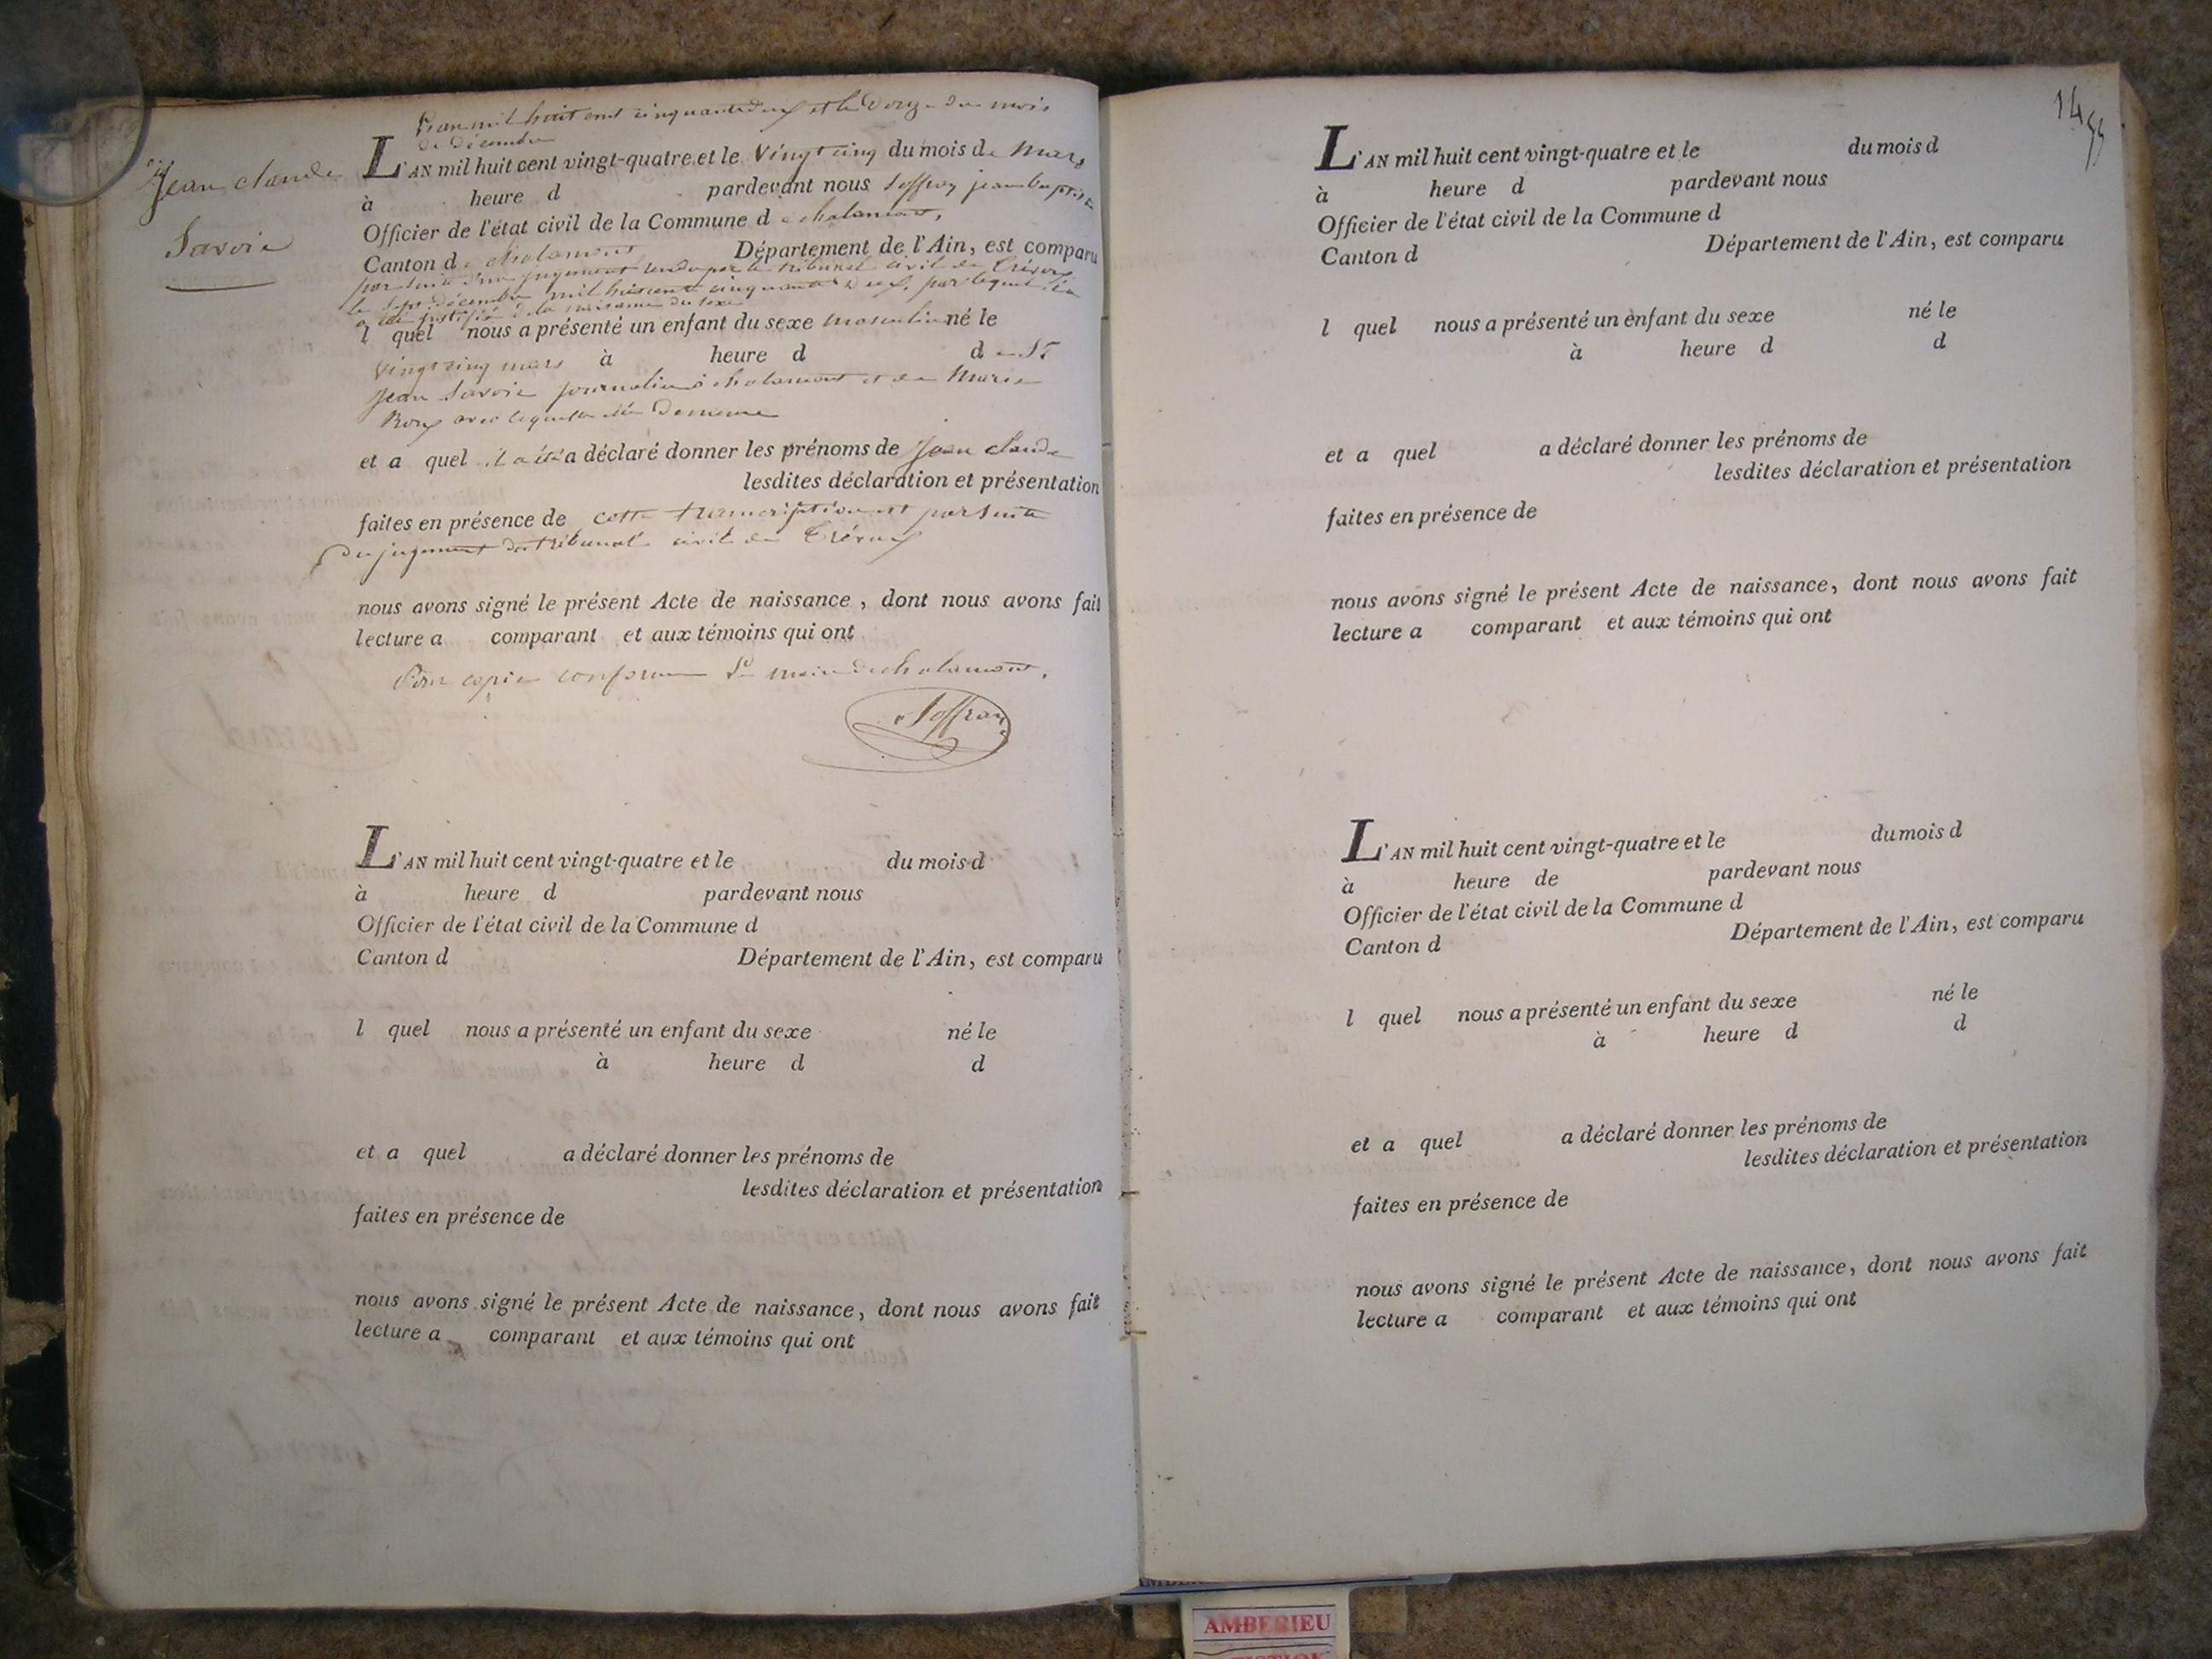 Jean claude
Savoie
L'an mil huit cent cinquante deux et le Douze du mois
de décembre
L'AN mil huit cent vingt-quatre et le Vingt cinq du mois de Mars
à heure d pardevant nous Joffray jean baptiste
Officier de l'état civil de la Commune de chalamont,
Canton de chalamont Département de l'Ain, est comparu
par suite d'un jugement rendu par le tribunal civil de Trévoux
le sept décembre mil huit cent cinquante deux, par lequel il
a été justifié de la naissance du sexe
l quel nous a présenté un enfant du sexe masculin né le
Vingt cinq mars à heure d de St
Jean Savoie journalier à chalamont et de Marie
Roux avec laquelle il demeure
et a quel il a été a déclaré donner les prénoms de Jean claude
lesdites déclaration et présentation
faites en présence de cette transcription est par suite
du jugement du tribunal civil de Trévoux
nous avons signé le présent Acte de naissance, dont nous avons fait
lecture a comparant et aux témoins qui ont
Pour copie conforme Le maire de chalamont,
Joffray
L'AN mil huit cent vingt-quatre et le du mois d
à heure d pardevant nous
Officier de l'état civil de la Commune d
Canton d Département de l'Ain, est comparu
l quel nous a présenté un enfant du sexe né le
à heure d d
et a quel a déclaré donner les prénoms de
lesdites déclaration et présentation
faites en présence de
nous avons signé le présent Acte de naissance, dont nous avons fait
lecture a comparant et aux témoins qui ont
14
L'AN mil huit cent vingt-quatre et le du mois d
à heure d pardevant nous
Officier de l'état civil de la Commune d
Canton d Département de l'Ain, est comparu
l quel nous a présenté un enfant du sexe né le
à heure d d
et a quel a déclaré donner les prénoms de
lesdites déclaration et présentation
faites en présence de
nous avons signé le présent Acte de naissance, dont nous avons fait
lecture a comparant et aux témoins qui ont
L'AN mil huit cent vingt-quatre et le du mois d
à heure de pardevant nous
Officier de l'état civil de la Commune d
Canton d Département de l'Ain, est comparu
l quel nous a présenté un enfant du sexe né le
à heure d d
et a quel a déclaré donner les prénoms de
lesdites déclaration et présentation
faites en présence de
nous avons signé le présent Acte de naissance, dont nous avons fait
lecture a comparant et aux témoins qui ont
AMBERIEU